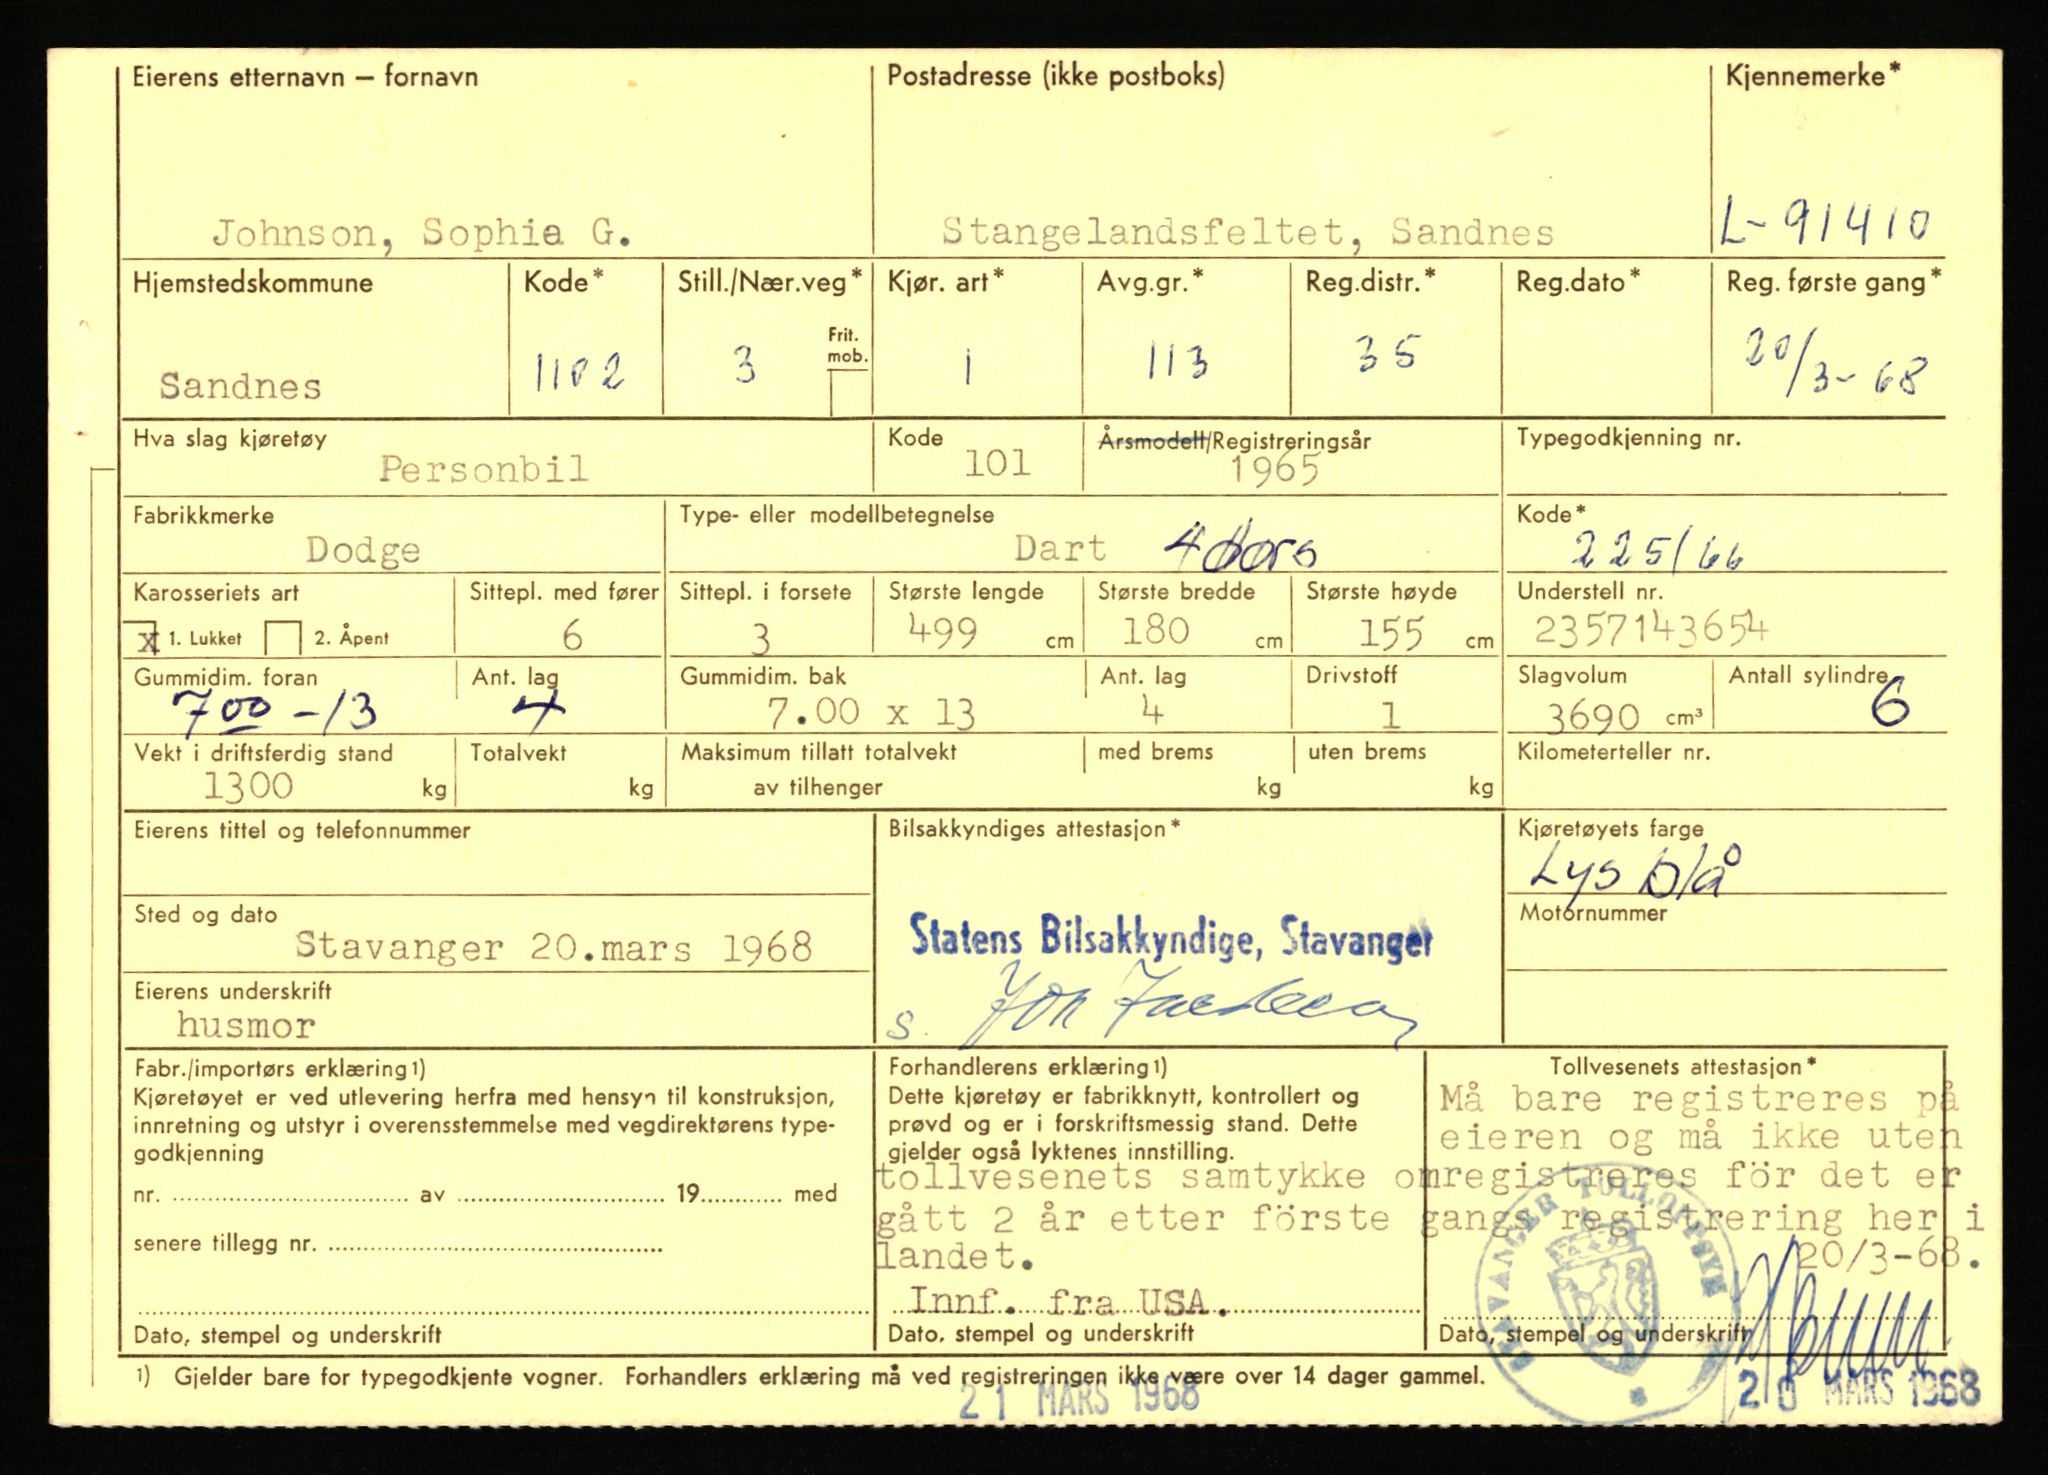 Eierens etternavn – fornavn
Postadresse (ikke postboks)
Kjennemerke*
Johnson, Sophie G.
Stangelandsfeltet, Sandnes
L-91410
Hjemstedskommune
Kode*
Still./Nær.veg*
Kjør. art*
Avg.gr.*
Reg.distr.*
Reg.dato*
Reg. første gang*
Frit. mob.
Sandnes
1102
3
1
113
35
20/3-68
Hva slag kjøretøy
Kode
Årsmodell/Registreringsår
Typegodkjenning nr.
Personbil
101
1965
Fabrikkmerke
Type- eller modellbetegnelse
Kode*
Dodge
Dart 4dørs
225/66
Karosseriets art
Sittepl. med fører
Sittepl. i forsete
Største lengde
Største bredde
Største høyde
Understell nr.
x 1. Lukket 2. Åpent
6
3
499 cm
180 cm
155 cm
2357143654
Gummidim. foran
Ant. lag
Gummidim. bak
Ant. lag
Drivstoff
Slagvolum
Antall sylindre
700-13
4
7.00 x 13
4
1
3690 cm³
6
Vekt i driftsferdig stand
Totalvekt
Maksimum tillatt totalvekt
med brems
uten brems
Kilometerteller nr.
1300 kg
kg
av tilhenger
kg
kg
Eierens tittel og telefonnummer
Bilsakkyndiges attestasjon*
Kjøretøyets farge
Lys blå
Sted og dato
Motornummer
Stavanger 20.mars 1968
Statens Bilsakkyndige, Stavanger
Eierens underskrift
husmor
s.
Fabr./importørs erklæring1)
Kjøretøyet er ved utlevering herfra med hensyn til konstruksjon,
innretning og utstyr i overensstemmelse med vegdirektørens type-
godkjenning
nr. av 19 med
senere tillegg nr.
Dato, stempel og underskrift
Forhandlerens erklæring1)
Dette kjøretøy er fabrikknytt, kontrollert og
prøvd og er i forskriftsmessig stand. Dette
gjelder også lyktenes innstilling.
Tollvesenets attestasjon*
Må bare registreres på
eieren og må ikke uten
tollvesenets samtykke omregistreres för det er
gått 2 år etter förste gangs registrering her i
landet.
20/3-68.
Innf. fra USA.
Dato, stempel og underskrift
Dato, stempel og underskrift
STAVANGER TOLLOPPSYN
1) Gjelder bare for typegodkjente vogner. Forhandlers erklæring må ved registreringen ikke være over 14 dager gammel.
21 MARS 1968
20 MARS 1968